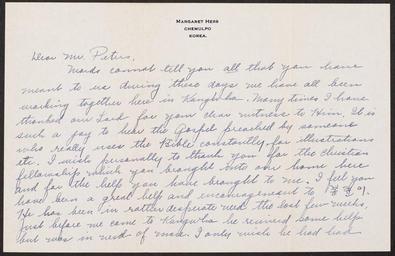 MARGARET HESS
CHEMULPO
KOREA.
Dear Mr. Peters,
Words cannot tell you all that you have
meant to us during these days we have all been
working together here in Kangwha. Many times I have
thanked our Lord for your clear witness to Him. It is
such a joy to hear the Gospel preached by someone
who really uses the Bible constantly for illustrations
etc. I wish personally to thank you for the Christian
fellowship which you brought into our home here
and for the help you have brought to me. I feel you
have been a great help and encouragement to
He has been in rather desperate need the last few weeks.
Just before we came to Kangwha he received some help
but was in need of more. I only wish he had had